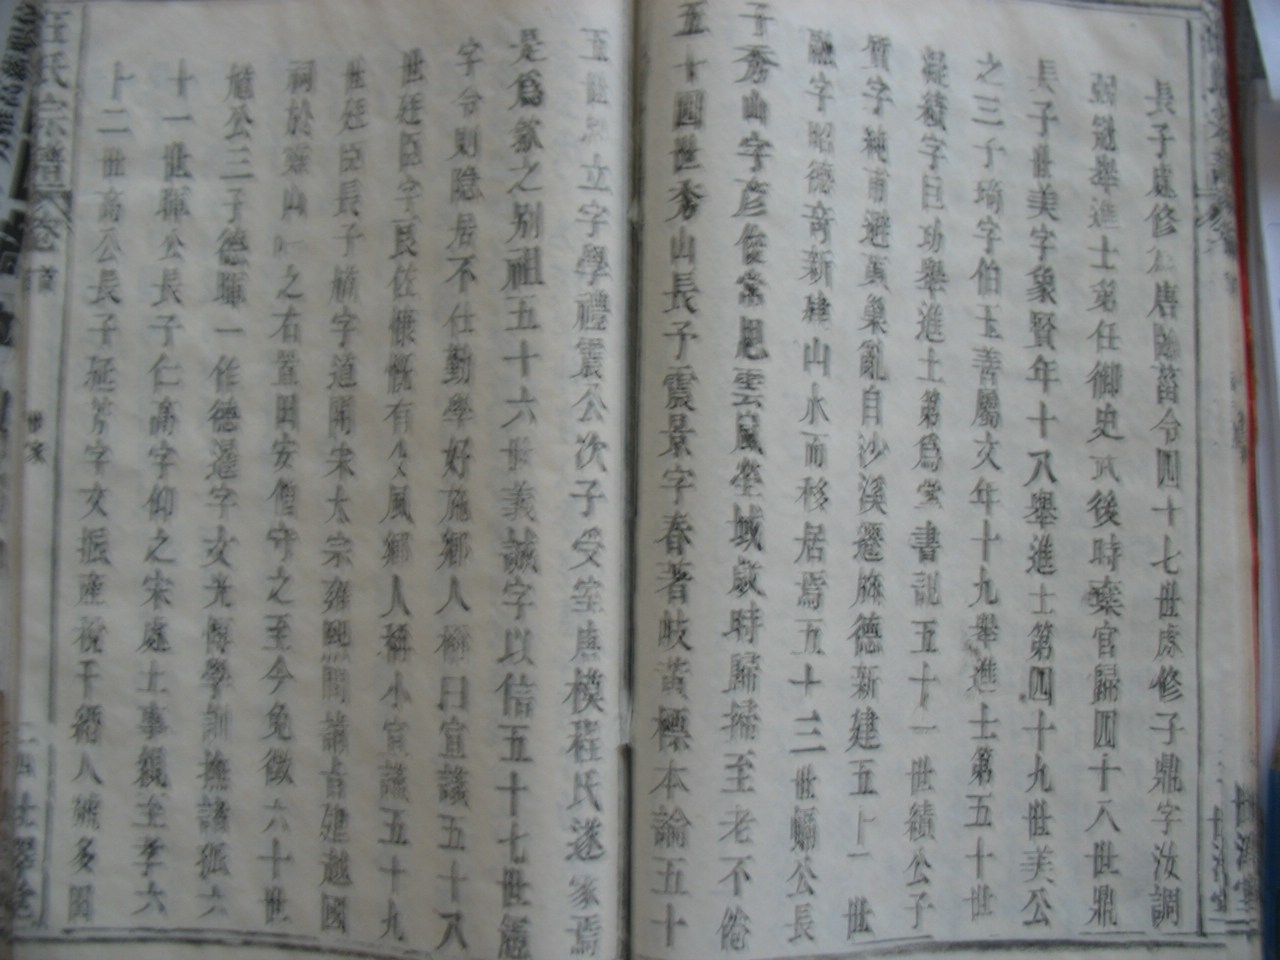 長子處修仕唐陳菑令四十七世處修子鼎字汝調
弱冠舉進士第任御史 後時棄官歸四十八世鼎
長子世美字象賢年十八舉進士第四十九世美公
之三子琦字伯玉善屬文年十九舉進士第五十世
凝績字巨功舉進士第為堂書記五十一世績公子
質字純甫避黃巢亂自沙溪遷旌德新建五十二世
讞字昭德奇新建山水而移居焉五十三世 公長
子秀山字彥俊常思雲嵐塋域歲時歸掃至老不倦
五十四世秀山長子震景字春著岐黃標本論五十
五世 立字學禮震公次子受室唐模程氏遂家焉
是為歙之別祖五十六世義誠字以信五十七世憲
字 則隱居不仕勤學好施鄉人 曰宣議五十八
世廷臣字良佐慷慨有 風鄉人稱小宣議五十九
世廷臣長子 字道開宋太宗雍熙間請旨建越國
祠於 山 之右置田安僧守之至今免徵六十世
公三子德暉一作德暹字文光博學訓撫諸孤六
十一世暉公長子仁高字仰之宋處士事親至孝六
十二世高公長子延芳字文振產稅千緡人號多田
汪氏宗譜 卷首